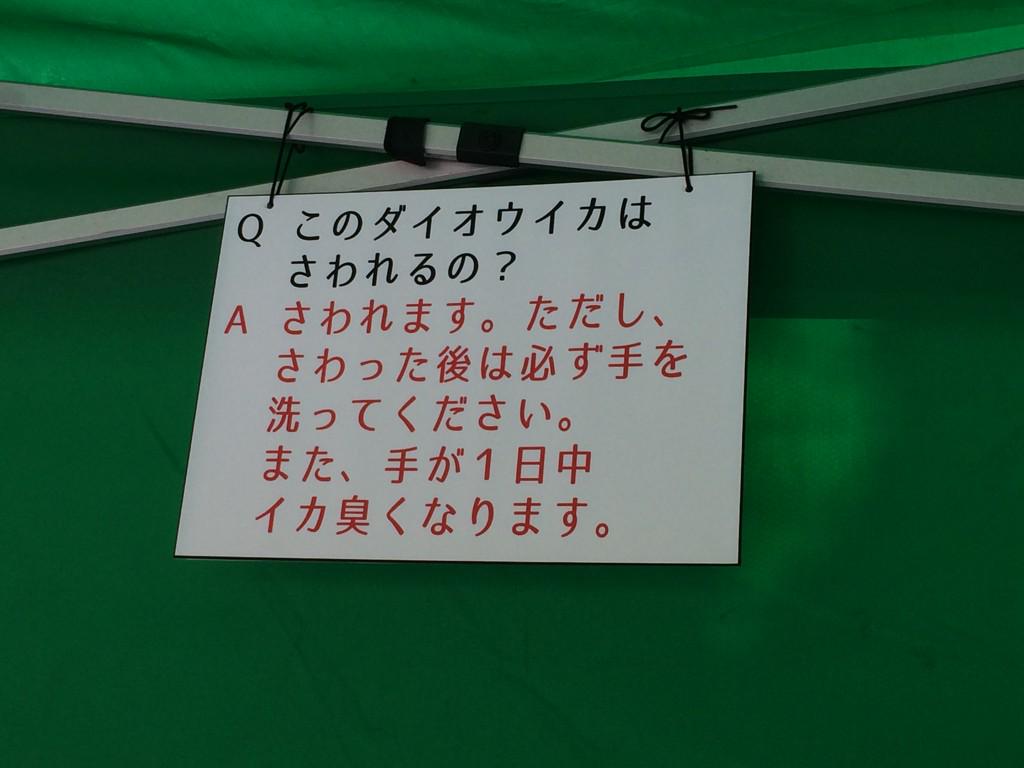 Q このダイオウイカは
さわれるの？
A さわれます。ただし、
さわった後は必ず手を
洗ってください。
また、手が１日中
イカ臭くなります。